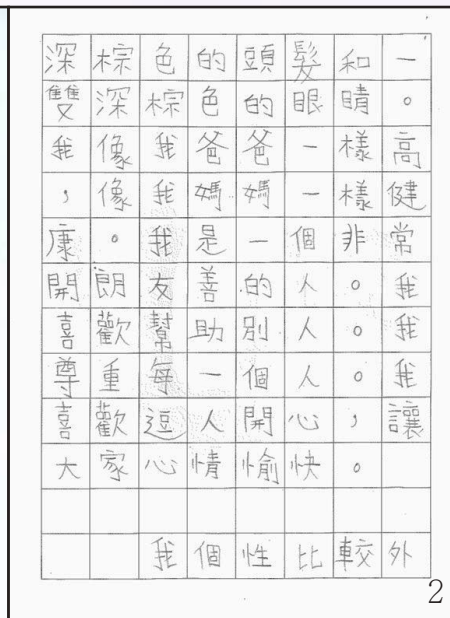 深棕色的頭髮和一
雙深棕色的眼睛。
我像我爸爸一樣高
，像我媽媽一樣健
康。我是一個非常
開朗友善的人。我
喜歡幫助別人。我
尊重每一個人。我
喜歡逗人開心，讓
大家心情愉快。
我個性比較外
2